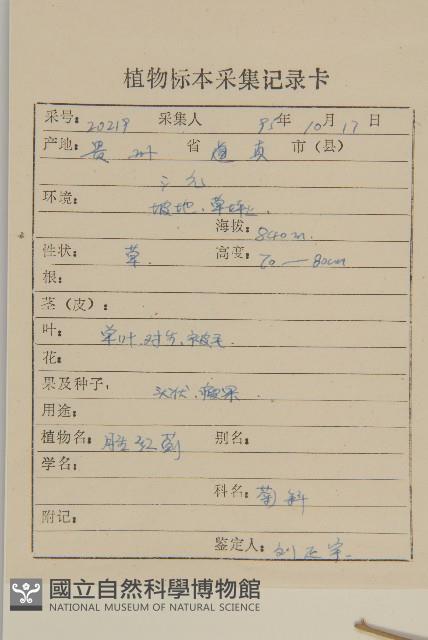 植物标本采集记录卡
采号: 20219 采集人 95年10月17日
产地: 贵州 省 道真 市(县)
三元
环境: 坡地、草坪上.
海拔: 840m.
性状: 草. 高度: 70—80cm
根:
茎(皮):
叶: 单叶.对生.被毛
花:
果及种子: 头状.瘦果.
用途:
植物名: 胜红蓟 别名:
学名:
科名: 菊科
附记:
鉴定人: 刘正宇.
國立自然科學博物館
NATIONAL MUSEUM OF NATURAL SCIENCE